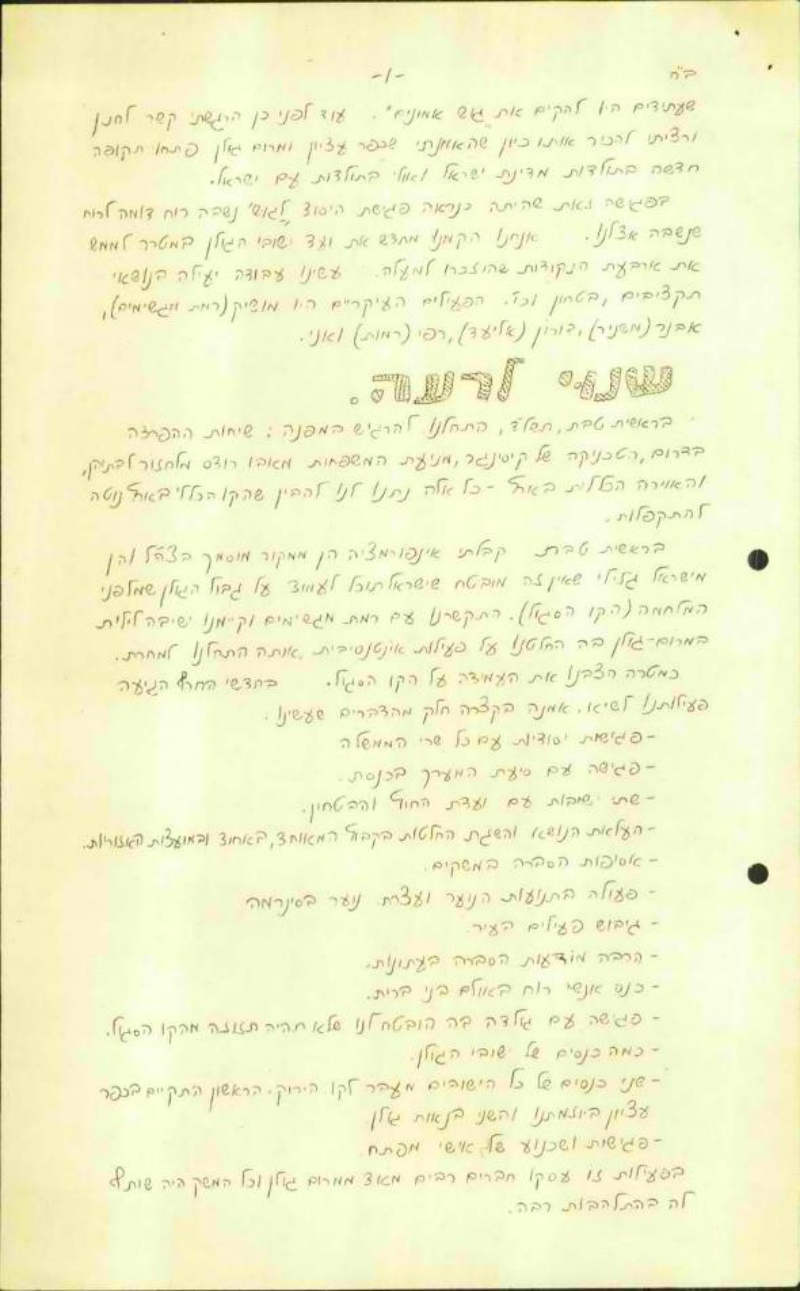 ב"ה
-1-
שעתידים היו להקים את "גוש אמונים". עוד לפני כן הרגשתי קשר לחנן
ורציתי להכיר אותו כיון שהאמנתי שכפר עציון ומרום גולן פתחו תקופה
חדשה בתולדות מדינת ישראל ואולי בתולדות עם ישראל.
בפגישה זאת שהיתה כנראה פגישת היסוד ל"גוש" נשבה רוח דומה לרוח
שנשבה אצלנו. אנחנו הקמנו מחדש את ועד ישובי הגולן במטרה לממש
את ארבעת הנקודות שהוזכרו למעלה. עשינו עבודה יעילה בנושאי
תקציבים, בטחון וכו'. הפעילים העיקריים היו מושיק (רמת מגשימים),
אבנר (משניר), (אליעד), רפי (רמות) ואני.
שנוי לרעה.
בראשית טבת, תשל"ד, התחלנו להרגיש במפנה; שיחות ההפרדה
בדרום, הטכניקה של קיסינג'ר, מניעת המשפחות מאבו רודס מלחזור לבתיהן,
והאוירה הכללית בארץ - כל אלה נתנו לנו להבין שהקו הכללי בארץ נוטה
להתקפלות.
בראשית טבת קבלתי אינפורמציה הן ממקור מוסמך בצה"ל והן
מישראל גלילי שאין זה מובטח שישראל תוכל לעמוד על גבול הגולן שמלפני
המלחמה (הקו הסגול). התקשרנו עם רמת מגשימים וקיימנו ישיבה לילית
במרום-גולן בה החלטנו על פעילות אינטנסיבית אותה התחלנו למחרת.
כמטרה הצבנו את העמידה על הקו הסגול. בחדשי החרף הגיעה
פעילותנו לשיא. אמנה בקצרה חלק מהדברים שעשינו.
- פגישות יסודיות עם כל שרי הממשלה
- פגישה עם סיעת המערך בכנסת.
- שתי ישיבות עם ועדת החוץ והבטחון.
- העלאת הנושא והשגת החלטות בקבוץ המאוחד, באחוד ובמועצות האזוריות.
- אסיפות הסברה במשקים.
- פעולה בתנועות הנוער ועצרת נוער בסינרמה
- גיבוש פעילים העיר.
- הרבה מודעות הסברה בעתונות.
- כנס אנשי רוח באולם בני ברית.
- פגישה עם גולדה בה הובטח לנו שלא תהיה תזוזה מהקו הסגול.
- כמה כנסים של ישובי הגולן.
- שני כנסים של כל הישובים מעבר לקו הירוק. הראשון התקיים בכפר
עציון ביוזמתנו והשני בנאות גולן
- פגישות ושכנוע של אישי מפתח
בפעילות זו עסקו חברים רבים מאוד ממרום גולן וכל המשק היה שותף
לה בהתלהבות רבה.